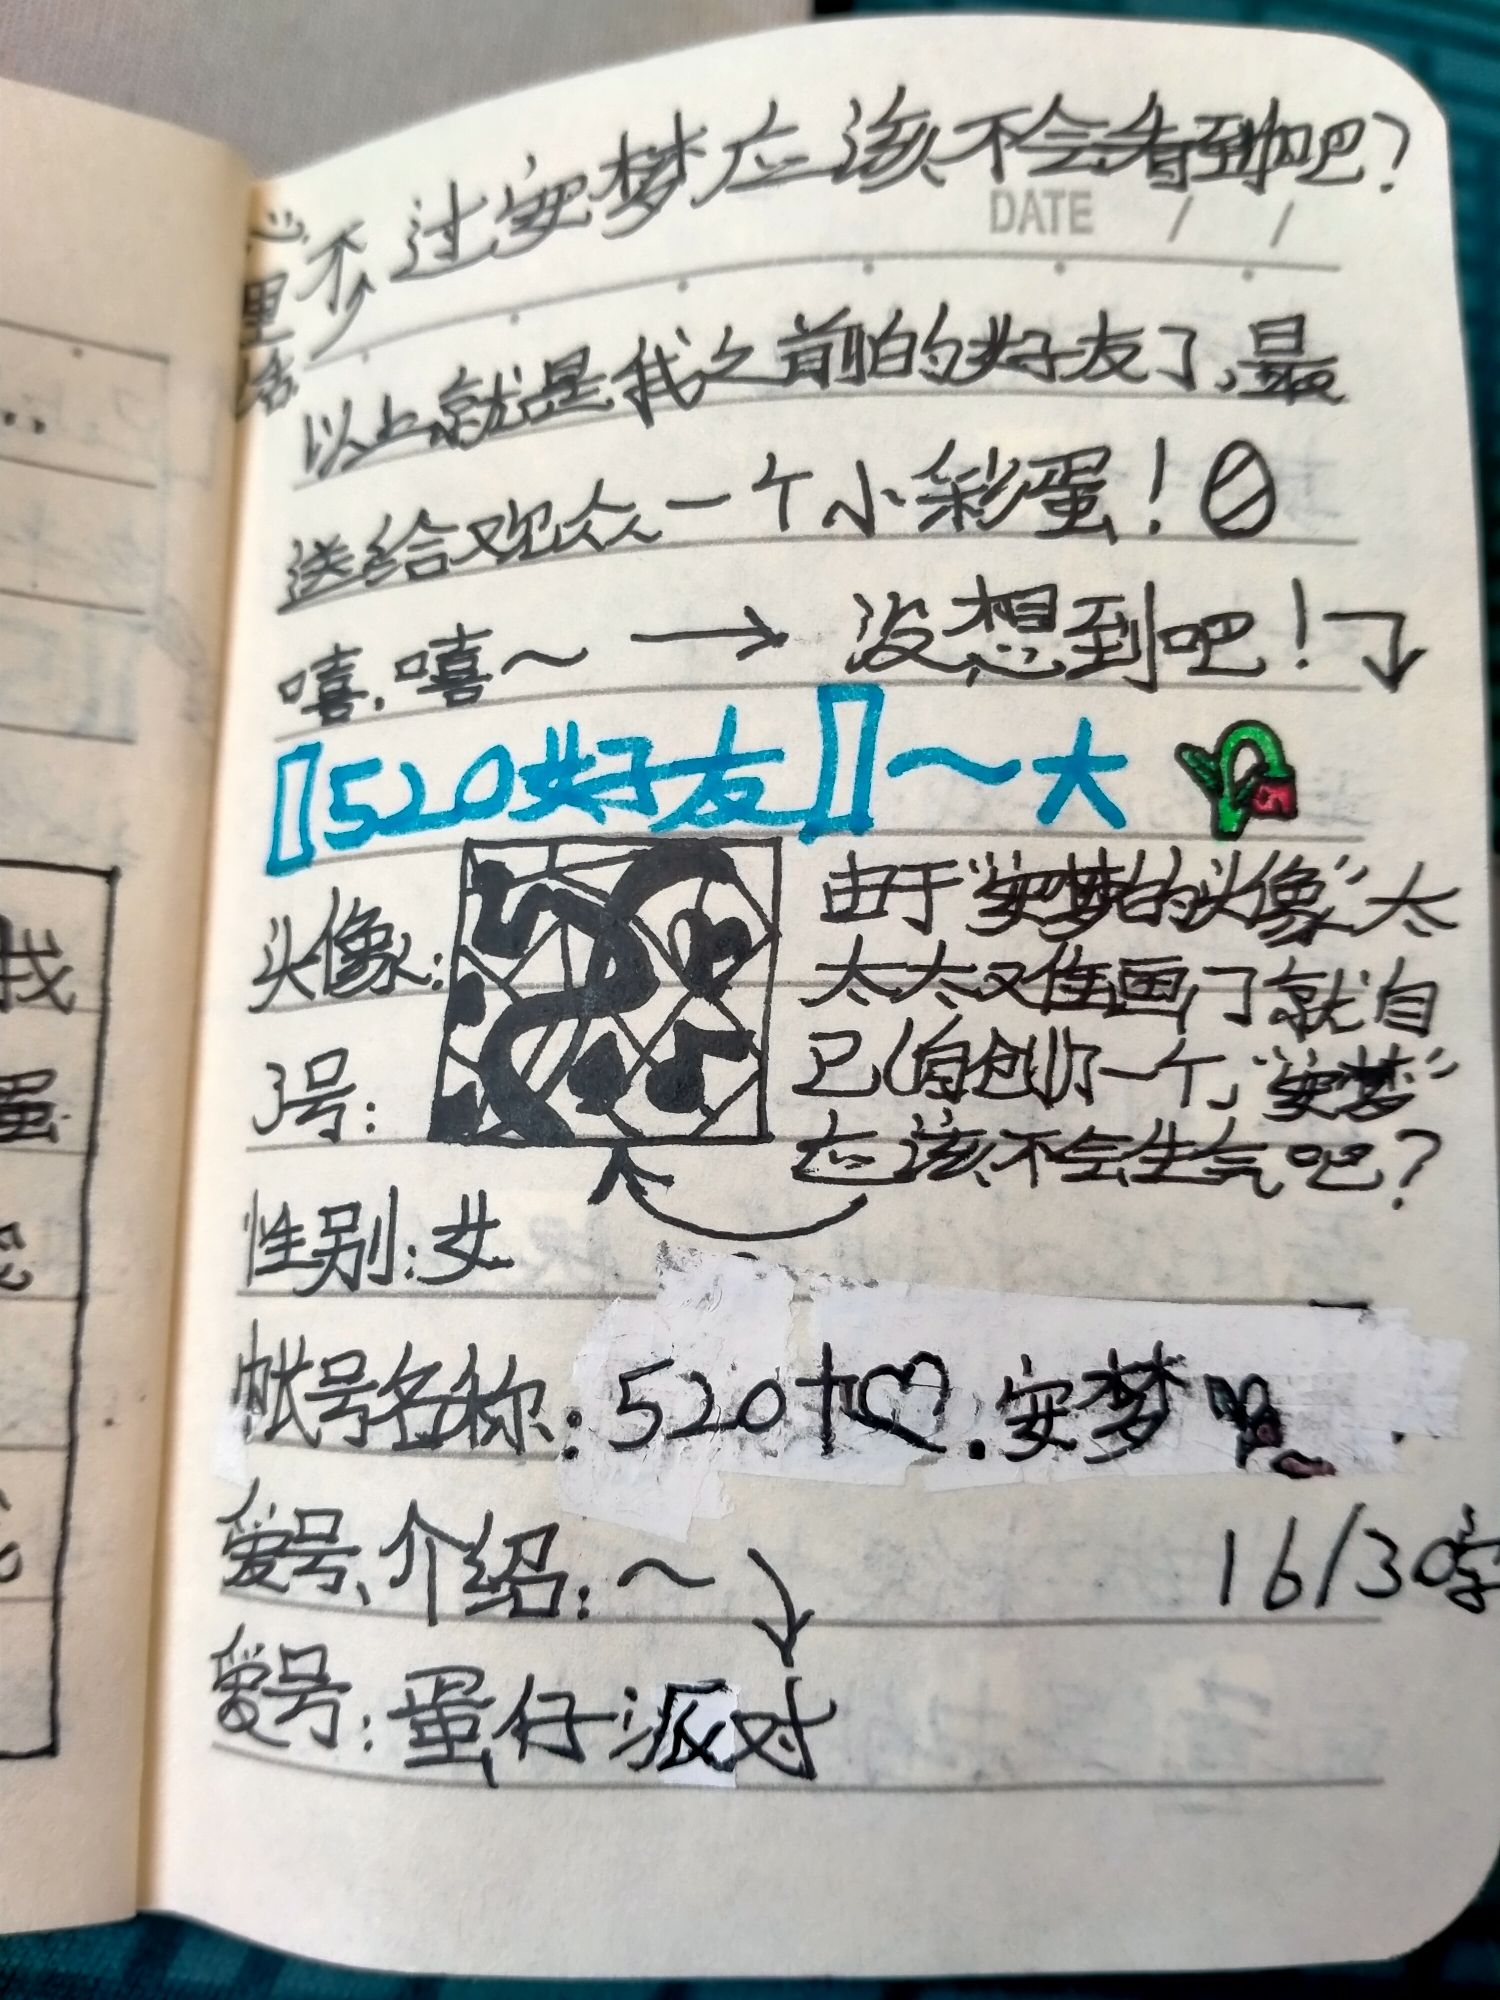 不过安梦应该不会看到吧?
DATE / /
心里话
以上就是我之前怕的好友了,最
送给观众一个小彩蛋!
嘻,嘻~→没想到吧!
【520好友】~大
头像:
由于“安梦的头像”太
太太又难画了就自
己(自创)了一个,“安梦”
应该不会生气吧?
号:
性别:女
帐号名称:520十♡.安梦
爱号介绍:~ 16/30字
爱号:蛋仔派对
我
蛋